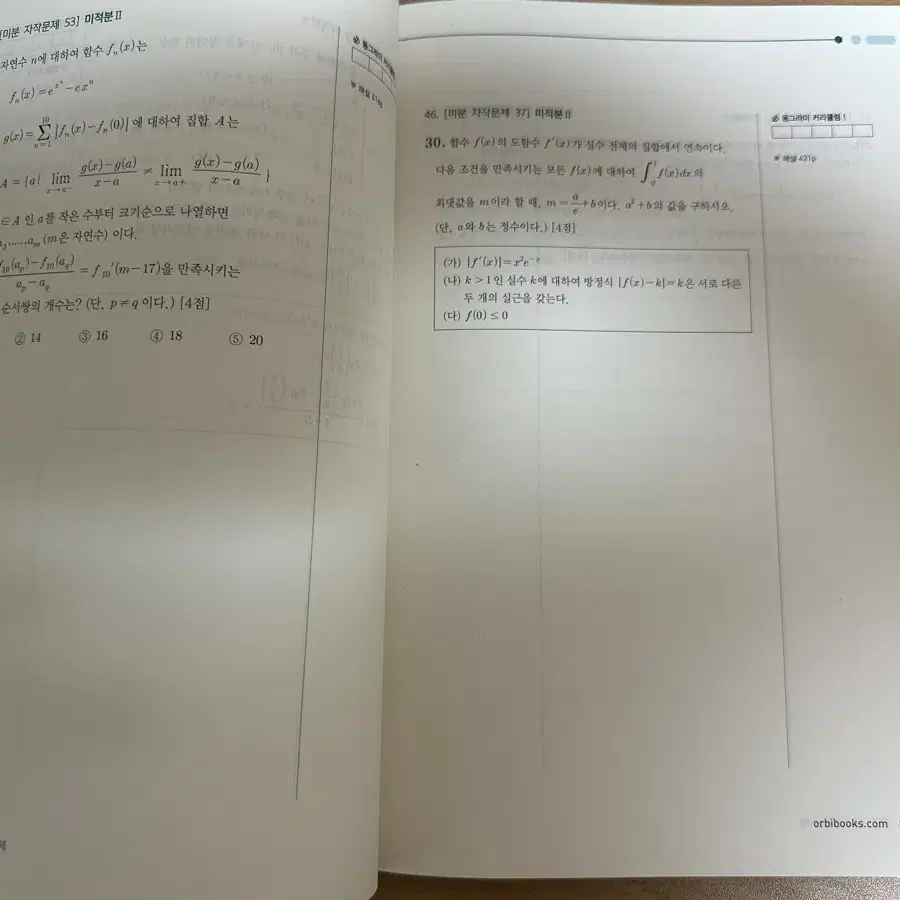 [미분 자작문제 53] 미적분Ⅱ
자연수 n에 대하여 함수 fₙ(x)는
fₙ(x)=e^{xⁿ}-exⁿ
g(x)=∑_{n=1}^{10}|fₙ(x)-fₙ(0)|에 대하여 집합 A는
A={a| lim_{x→a-} (g(x)-g(a))/(x-a) ≠ lim_{x→a+} (g(x)-g(a))/(x-a) }
∈A인 a를 작은 수부터 크기순으로 나열하면
a₃,……,aₘ(m은 자연수)이다.
(f₁₀(aₚ)-f₁₀(a_q))/(aₚ-a_q)=f₁₀′(m-17)을 만족시키는
순서쌍의 개수는? (단, p≠q이다.) [4점]
② 14 ③ 16 ④ 18 ⑤ 20
46. [미분 자작문제 37] 미적분Ⅱ
30. 함수 f(x)의 도함수 f′(x)가 실수 전체의 집합에서 연속이다.
다음 조건을 만족시키는 모든 f(x)에 대하여 f(x)dx의
최댓값을 m이라 할 때, m=a/e+b이다. a²+b의 값을 구하시오.
(단, a와 b는 정수이다.) [4점]
(가) |f′(x)|=x²e^{-x}
(나) k>1인 실수 k에 대하여 방정식 |f(x)-k|=k은 서로 다른
두 개의 실근을 갖는다.
(다) f(0)≤0
동그라미 커리큘럼!
해설 421p
orbibooks.com